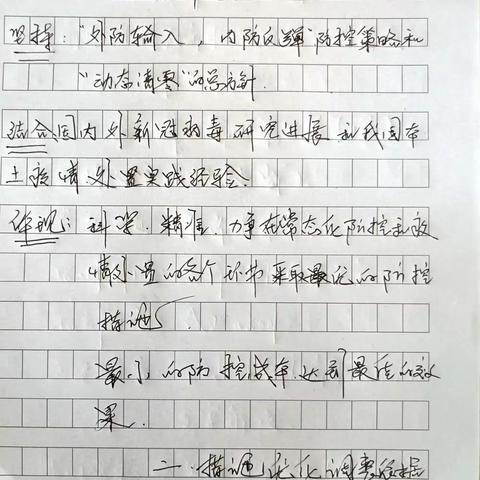 坚持:“外防输入,内防反弹”防控策略和
“动态清零”的总方针.
结合国内外新冠病毒研究进展和我国本
土疫情处置实践经验.
体现:科学.精准.力争在常态化防控和疫
情处置的各个环节采取最优的防控
措施
最小的防控成本达到最佳的效
果.
二.措施优化调整依据